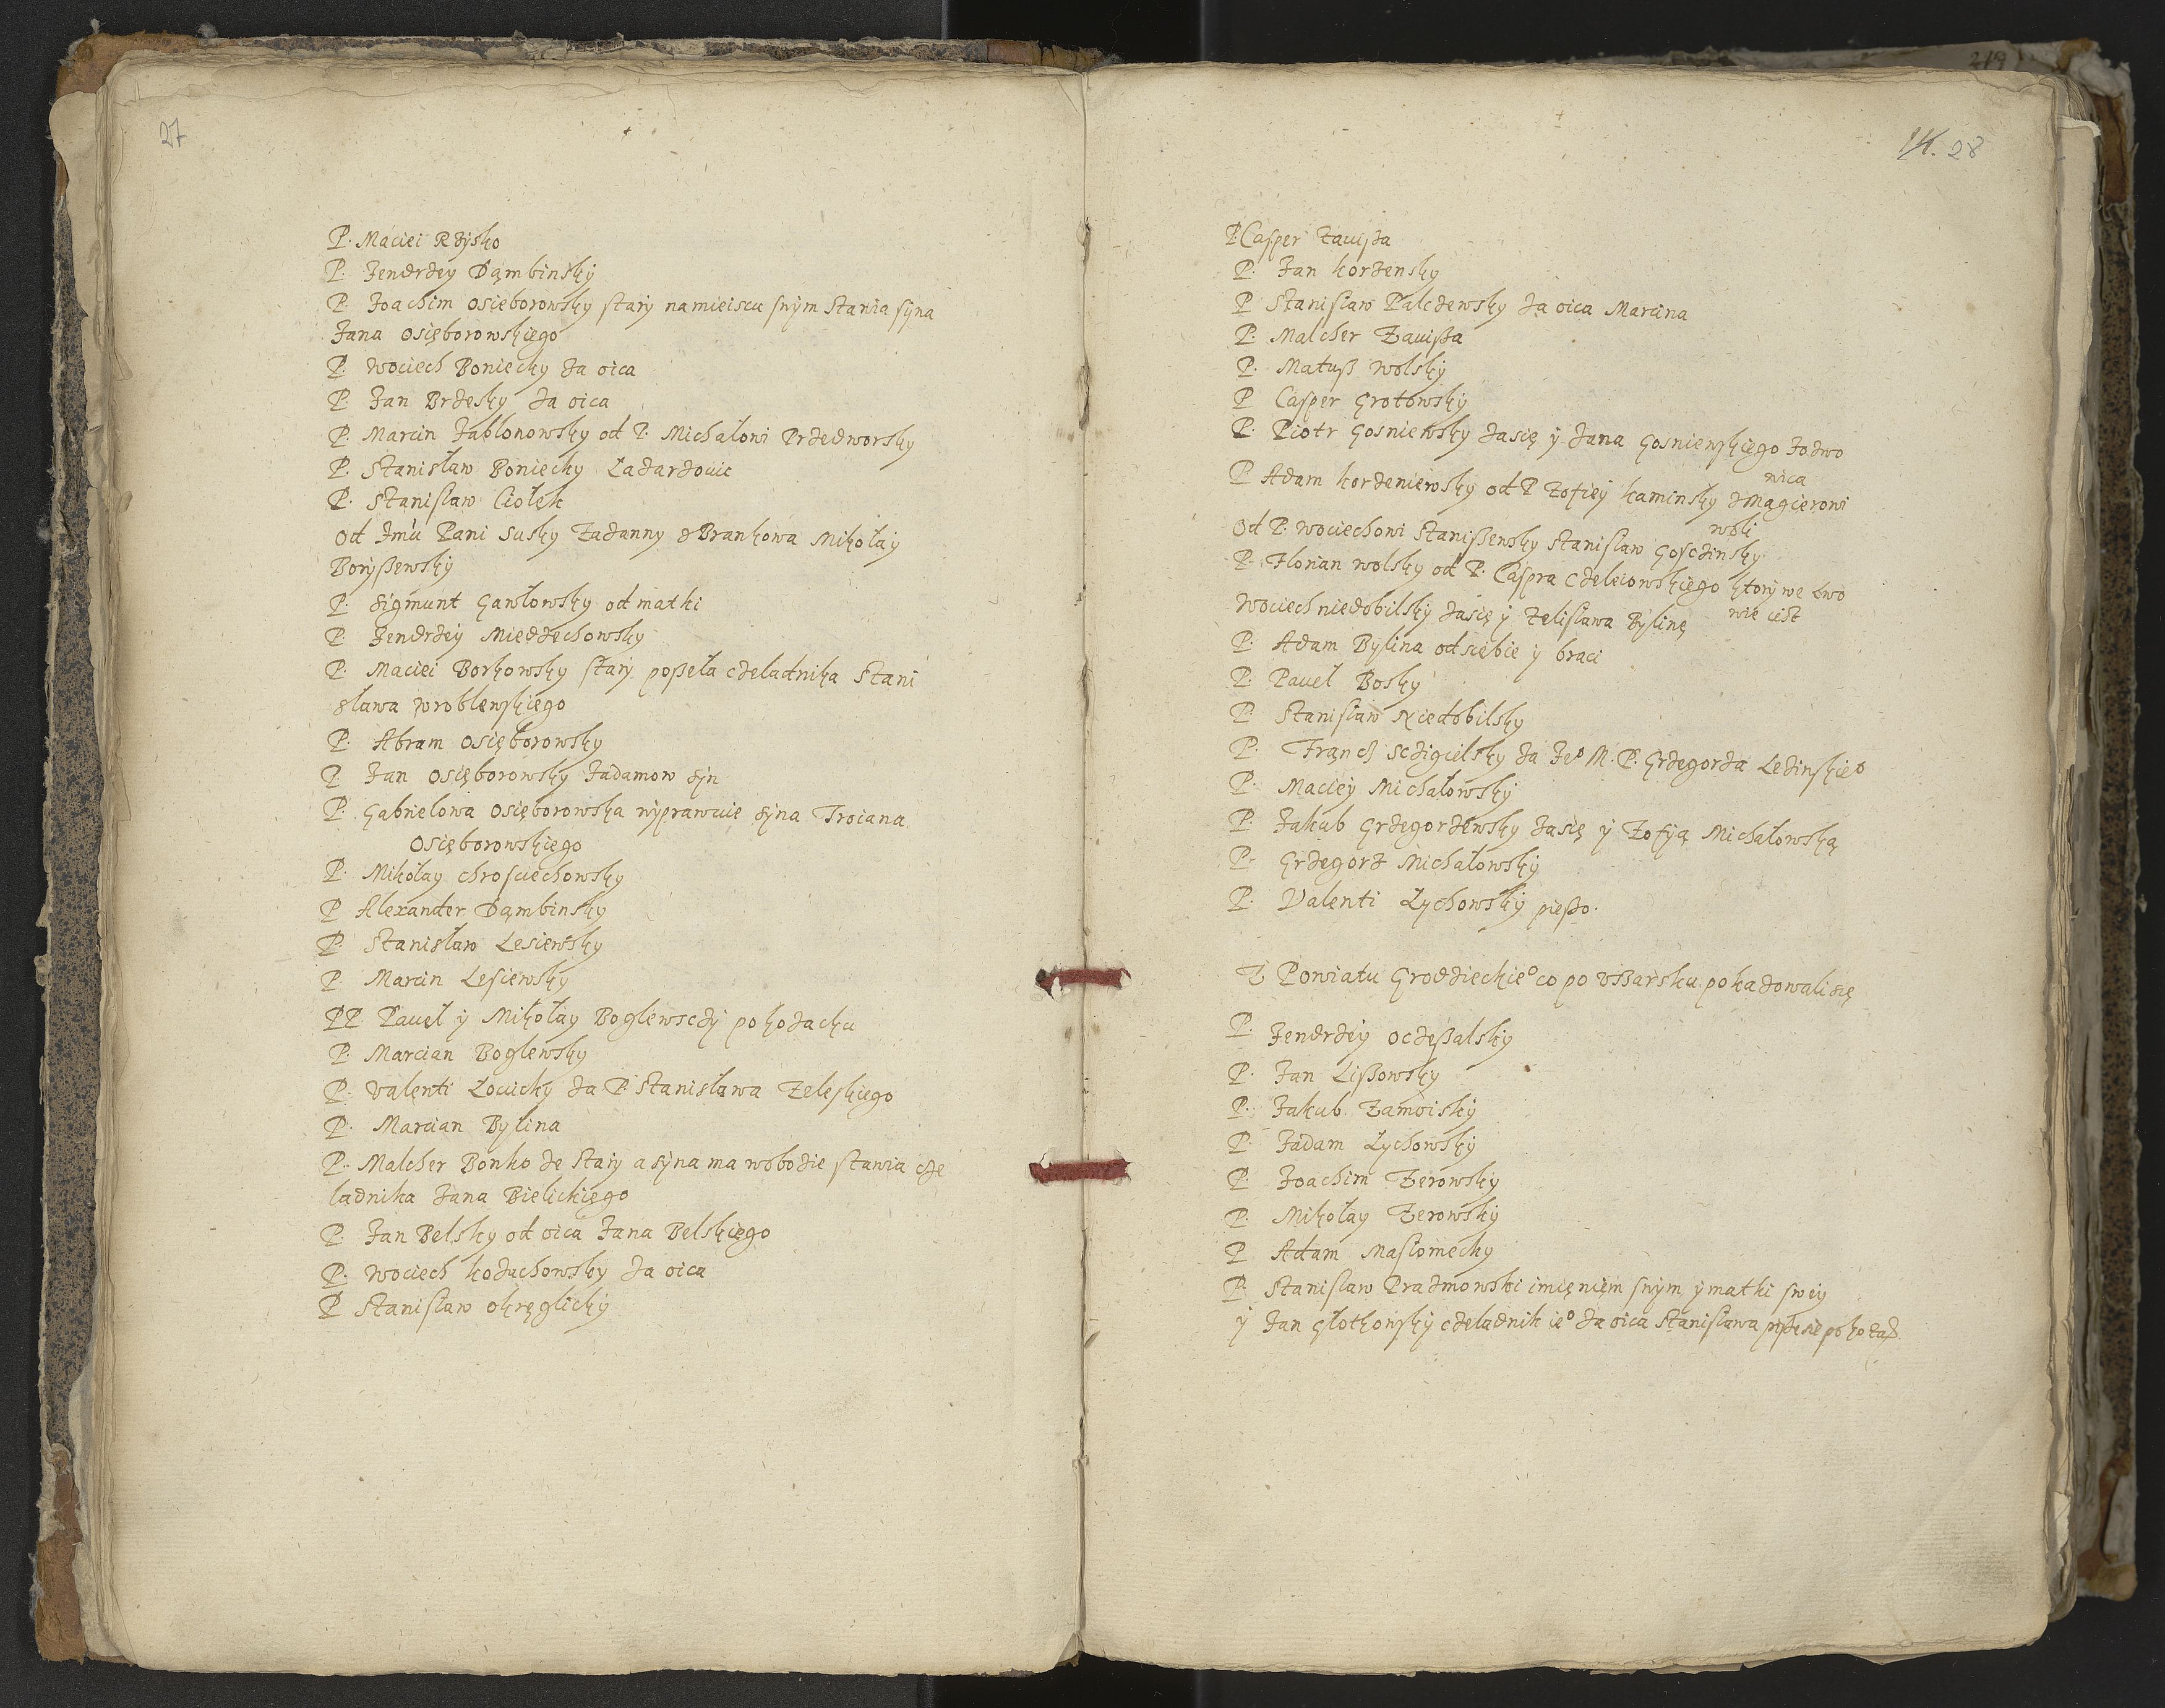 27
P. Maciei Rzysko
P. Jendrzey Dąmbinsky
P. Joachim Osięborowsky stary na mieiscu swym stawia syna
Jana Osięborowskiego
P. Wociech Boniecky za oica
P. Jan Brzesky za oica
P. Marcin Jablonowsky od P. Michałowi Przedworsky
P. Stanisław Boniecky Ładarzowic
P. Stanislaw Ciołek
Od Jmu Pani Susky Zuzanny z Brankowa Mikołay
Boryszewsky
P. Sigmunt Gawłowsky od matki
P. Jendrzey Miedzechowsky
P. Maciei Borkowsky stary poszeła czeladnika Stani
sława Wroblewskiego
P. Abram Osięborowsky
P. Jan Osięborowsky Jadamow syn
P. Gabrielowa Osięborowska wyprawuie syna Troiana
Osięborowskiego
P. Mikołay Chrosciechowsky
P Alexander Dąmbinsky
P. Stanisław Lesiewsky
P. Marcin Lesiewsky
PP Paueł y Mikołay Boglewsczy po kozacku
P. Marcian Boglewsky
P. Valenti Łowicky za P. Stanisława Zeleskiego
P. Marcian Bylina
P. Malcher Bonko ze stary a syna ma w obozie stawia cze
ladnika Jana Bielickiego
P. Jan Belsky od oica Jana Belskiego
P. Wociech Kozuchowsky za oica
P Stanislaw Okręglicky
14. 28
P. Casper Zawisza
P. Jan Korzensky
P Stanislaw Palczewsky za oica Marcina
P. Malcher Zawisza
P. Matusz Wolsky
P Casper Grotowsky
P. Piotr Gosniewsky za się y Jana Gosniewskiego Jozwo
wica
P Adam Korzeniewsky od P Zofiey Kaminsky z Magierowi
woli
Od P. Wociechowi Staniszewsky Stanislaw Gosczinsky
P. Florian Wolsky od P. Caspra Czeleiowskiego ktory we Lwo
wie iest
Wociech Niedobilsky za się y Zelislawa Bylinę
P. Adam Bylina od siebie y braci
P. Paueł Bosky
P. Stanislaw Niedobilsky
P. Franc Sczigielsky za Je° M. P. Grzegorza Lezinskie°
P. Maciey Michałowsky
P. Jakub Grzegorzewsky za się y Zofyą Michałowską
P. Grzegorz Michałowsky
P. Valenti Łychowsky pieszo.
Z Powiatu Grodzieckie° co po Vssarsku pokazowali się
P. Jendrzey Oczeszalsky
P. Jan Liszowsky
P. Jakub Zamoisky
P. Jadam Łychowsky
P. Joachim Zerowsky
P. Mikołay Zerowsky
P Adam Maslomecky
P. Stanislaw Prazmowski imięnięm swym y matki swey
y Jan Głotkowsky czeladnik ie° za oica Stanislawa